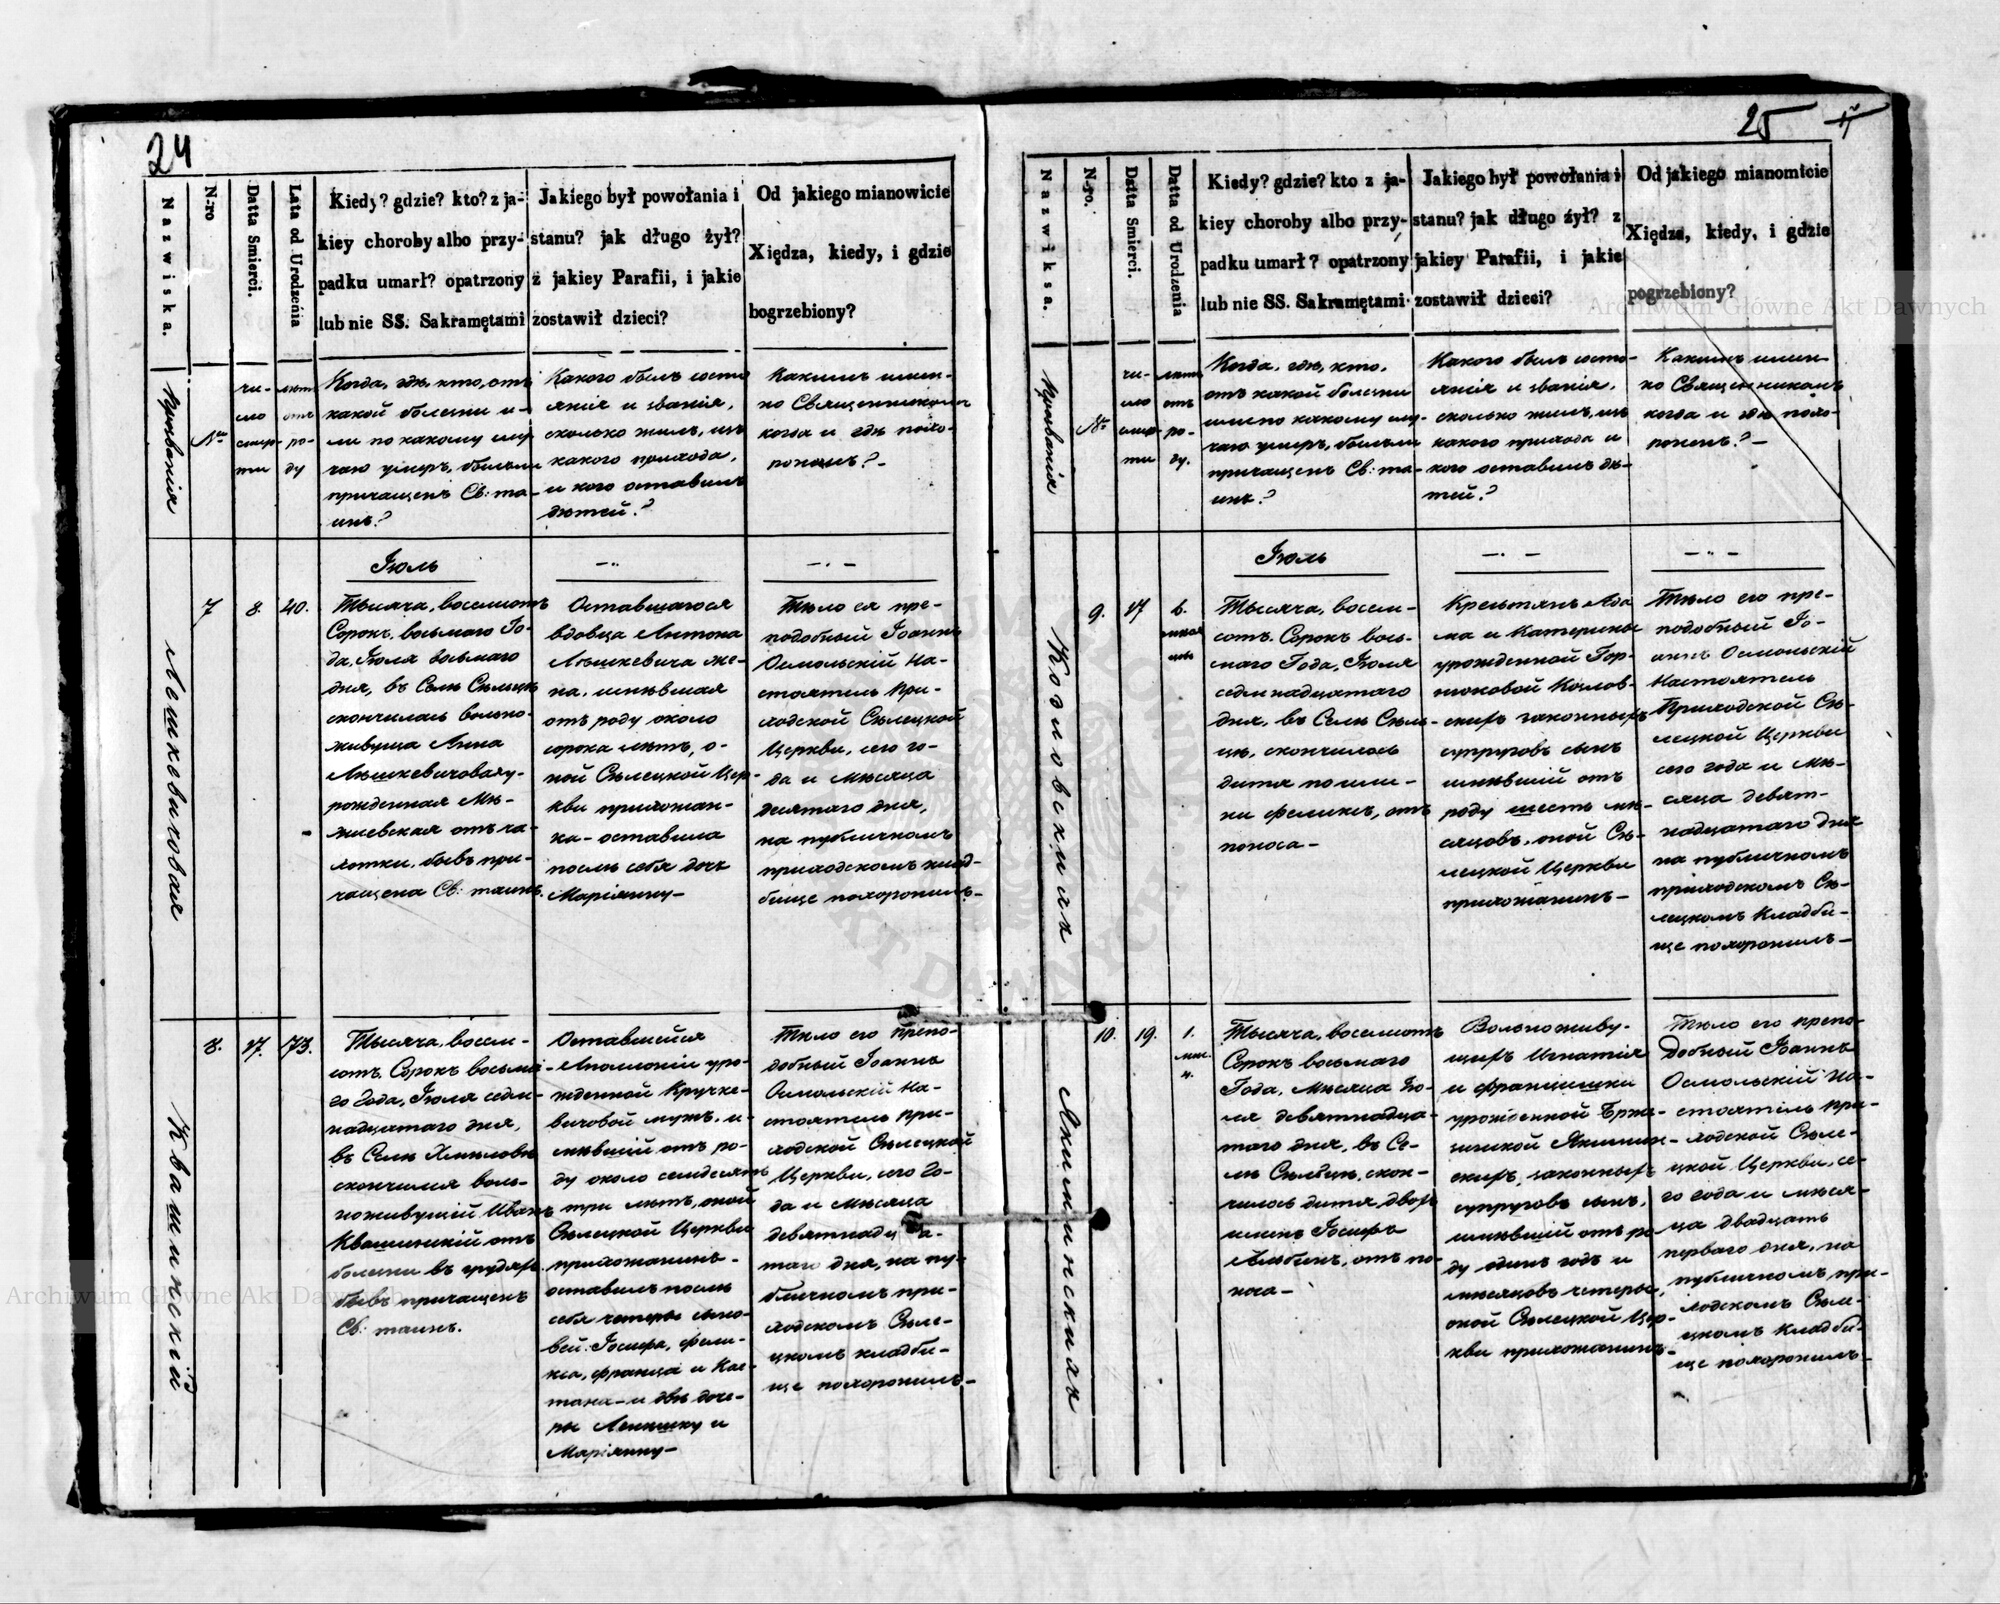 24
Nazwiska.
N-ro
Datta Smierci.
Lata od Urodzenia
Kiedy? gdzie? kto? z ja-
kiey choroby albo przy-
padku umarł? opatrzony
lub nie SS. Sakramętami
Jakiego był powołania i
stanu? jak długo żył?
z jakiey Parafii, i jakie
zostawił dzieci?
Od jakiego mianowicie
Xiędza, kiedy, i gdzie
bogrzebiony?
Прозванія
№
чи-
сло
смер-
ти
лѣта
отъ
ро-
ду
Когда, гдѣ, кто, отъ
какой болезни и-
ли по какому слу
чаю умеръ, былъли
причащенъ Св: та-
инъ?
Какого былъ состо
янія и званія,
сколько жилъ, изъ
какого прихода,
и кого оставилъ
дѣтей?
Какимъ имен-
но Священникомъ
когда и гдѣ похо-
роненъ?-
Іюль
Лешкевичовая
7
8.
40.
Тысяча, восемьсотъ
Сорокъ, восьмаго Го-
да, Іюля восьмаго
дня, въ Селѣ Сѣльцѣ
скончилась вольно-
живуща Анна
Лѣшкевичовая у-
рожденная Мѣ-
жиевская отъ ча-
хотки, бывъ при-
чащена Св: таинъ.
Оставшагося
вдовца Антона
Лѣшкевича же-
на, имѣвшая
отъ роду около
сорока лѣтъ, о-
ной Сѣлецкой Цер-
кви прихожан-
ка- оставила
послѣ себя дочь
Маріянну-
Тѣло ея пре-
подобный Іоаннъ
Осмольскій На-
стоятель при-
ходской Сѣлецкой
Церкви, сего го-
да и мѣсяца
десятаго дня,
на публичномъ
приходскомъ клад-
бище похоронилъ-
Квашинскій
8.
17.
73.
Тысяча, восем-
сотъ, Сорокъ восьма-
го Года, Іюля седм-
надцатаго дня,
въ Селѣ Хмѣловѣ
скончился воль-
ноживущій Иванъ
Квашинскій отъ
болезни въ грудяхъ
бывъ причащенъ
Св: таинъ.
Оставшейся
Аполлоніи уро-
жденной Кручке-
вичовой мужъ, и-
мѣвшій отъ ро-
ду около семдесятъ
три лѣтъ, оной
Сѣлецкой Церкви
прихожанинъ-
оставилъ послѣ
себя четыри сыно-
вей: Іосифа, фели-
кса, францa и Кае-
тана- и двѣ доче-
ры Агнѣшку и
Маріянну-
Тѣло его препо-
добный Іоаннъ
Осмольскій На-
стоятель при-
ходской Сѣлецкой
Церкви, сего Го-
да и Мѣсяца
девятнадца-
таго дня, на пу-
бличномъ при-
ходскомъ Сѣле-
цкомъ кладби-
ще похоронилъ-
25
Nazwiksa.
N-ro.
Datta Smierci.
Datta od Urodzenia
Kiedy? gdzie? kto z ja-
kiey choroby albo przy-
padku umarł? opatrzony
lub nie SS. Sakramętami
Jakiego był powołania i
stanu? jak długo żył? z
jakiey Parafii, i jakie
zostawił dzieci?
Od jakiego mianomicie
Xiędza, kiedy, i gdzie
pogrzebiony?
Прозванія
№
чи-
сло
смер-
ти
лѣта
отъ
ро-
ду.
Когда, гдѣ, кто,
отъ какой болезни
или по какому слу
чаю умеръ, былъли
причащенъ Св: та-
инъ?
Какого былъ состо-
янія и званія,
сколько жилъ, изъ
какого прихода и
кого оставилъ дѣ-
тей?
Какимъ имен-
но Священникомъ
когда и гдѣ похо-
роненъ?-
Іюль
Козловскихъ
9.
17
6.
мѣся
цовъ
Тысяча, восем-
сотъ, Сорокъ вось-
маго Года, Іюля
седмнадцатаго
дня, въ Селѣ Сѣль-
цѣ, скончилось
дитя по име-
ни феликсъ, отъ
поноса-
Крестьянъ Ада
ма и Катерины
урожденной Гор-
шковой Козлов-
скихъ законныхъ
супруговъ сынъ
имѣвшій отъ
роду шесть мѣ-
сяцовъ, оной Сѣ-
лецкой Церкви
прихожанинъ-
Тѣло его пре-
подобный Іо-
аннъ Осмольскій
Настоятель
Приходской Сѣ-
лецкой Церкви
сего года и мѣ-
сяца девят-
надцатаго дня
на публичномъ
приходскомъ Сѣ-
лецкомъ Кладби-
ще похоронилъ-
Якиминскихъ
10.
19.
1.
мѣс.
4.
Тысяча, восемьсотъ
Сорокъ восьмаго
Года, мѣсяца Ію-
ля девятнадца-
таго дня, въ Се-
лѣ Сѣльцѣ, скон-
чилось дитя, двохъ
именъ Іосифъ
Альбинъ, отъ по-
носа-
Вольноживу-
щихъ Игнатія
и францишки
урожденной Бржо-
зинской Якимин-
скихъ, законныхъ
супруговъ сынъ,
имѣвшій отъ ро
ду одинъ годъ и
мѣсяцовъ четыре,
оной Сѣлецкой Цер-
кви прихожанинъ-
Тѣло его препо-
добный Іоаннъ
Осмольскій На-
стоятель при-
ходской Сѣле-
цкой Церкви, се-
го года и мѣся-
ца двадцать
перваго дня, на
публичномъ при-
ходскомъ Сѣле-
цкомъ кладби-
ще похоронилъ-
Archiwum Główne Akt Dawnych
Archiwum Główne Akt Dawnych